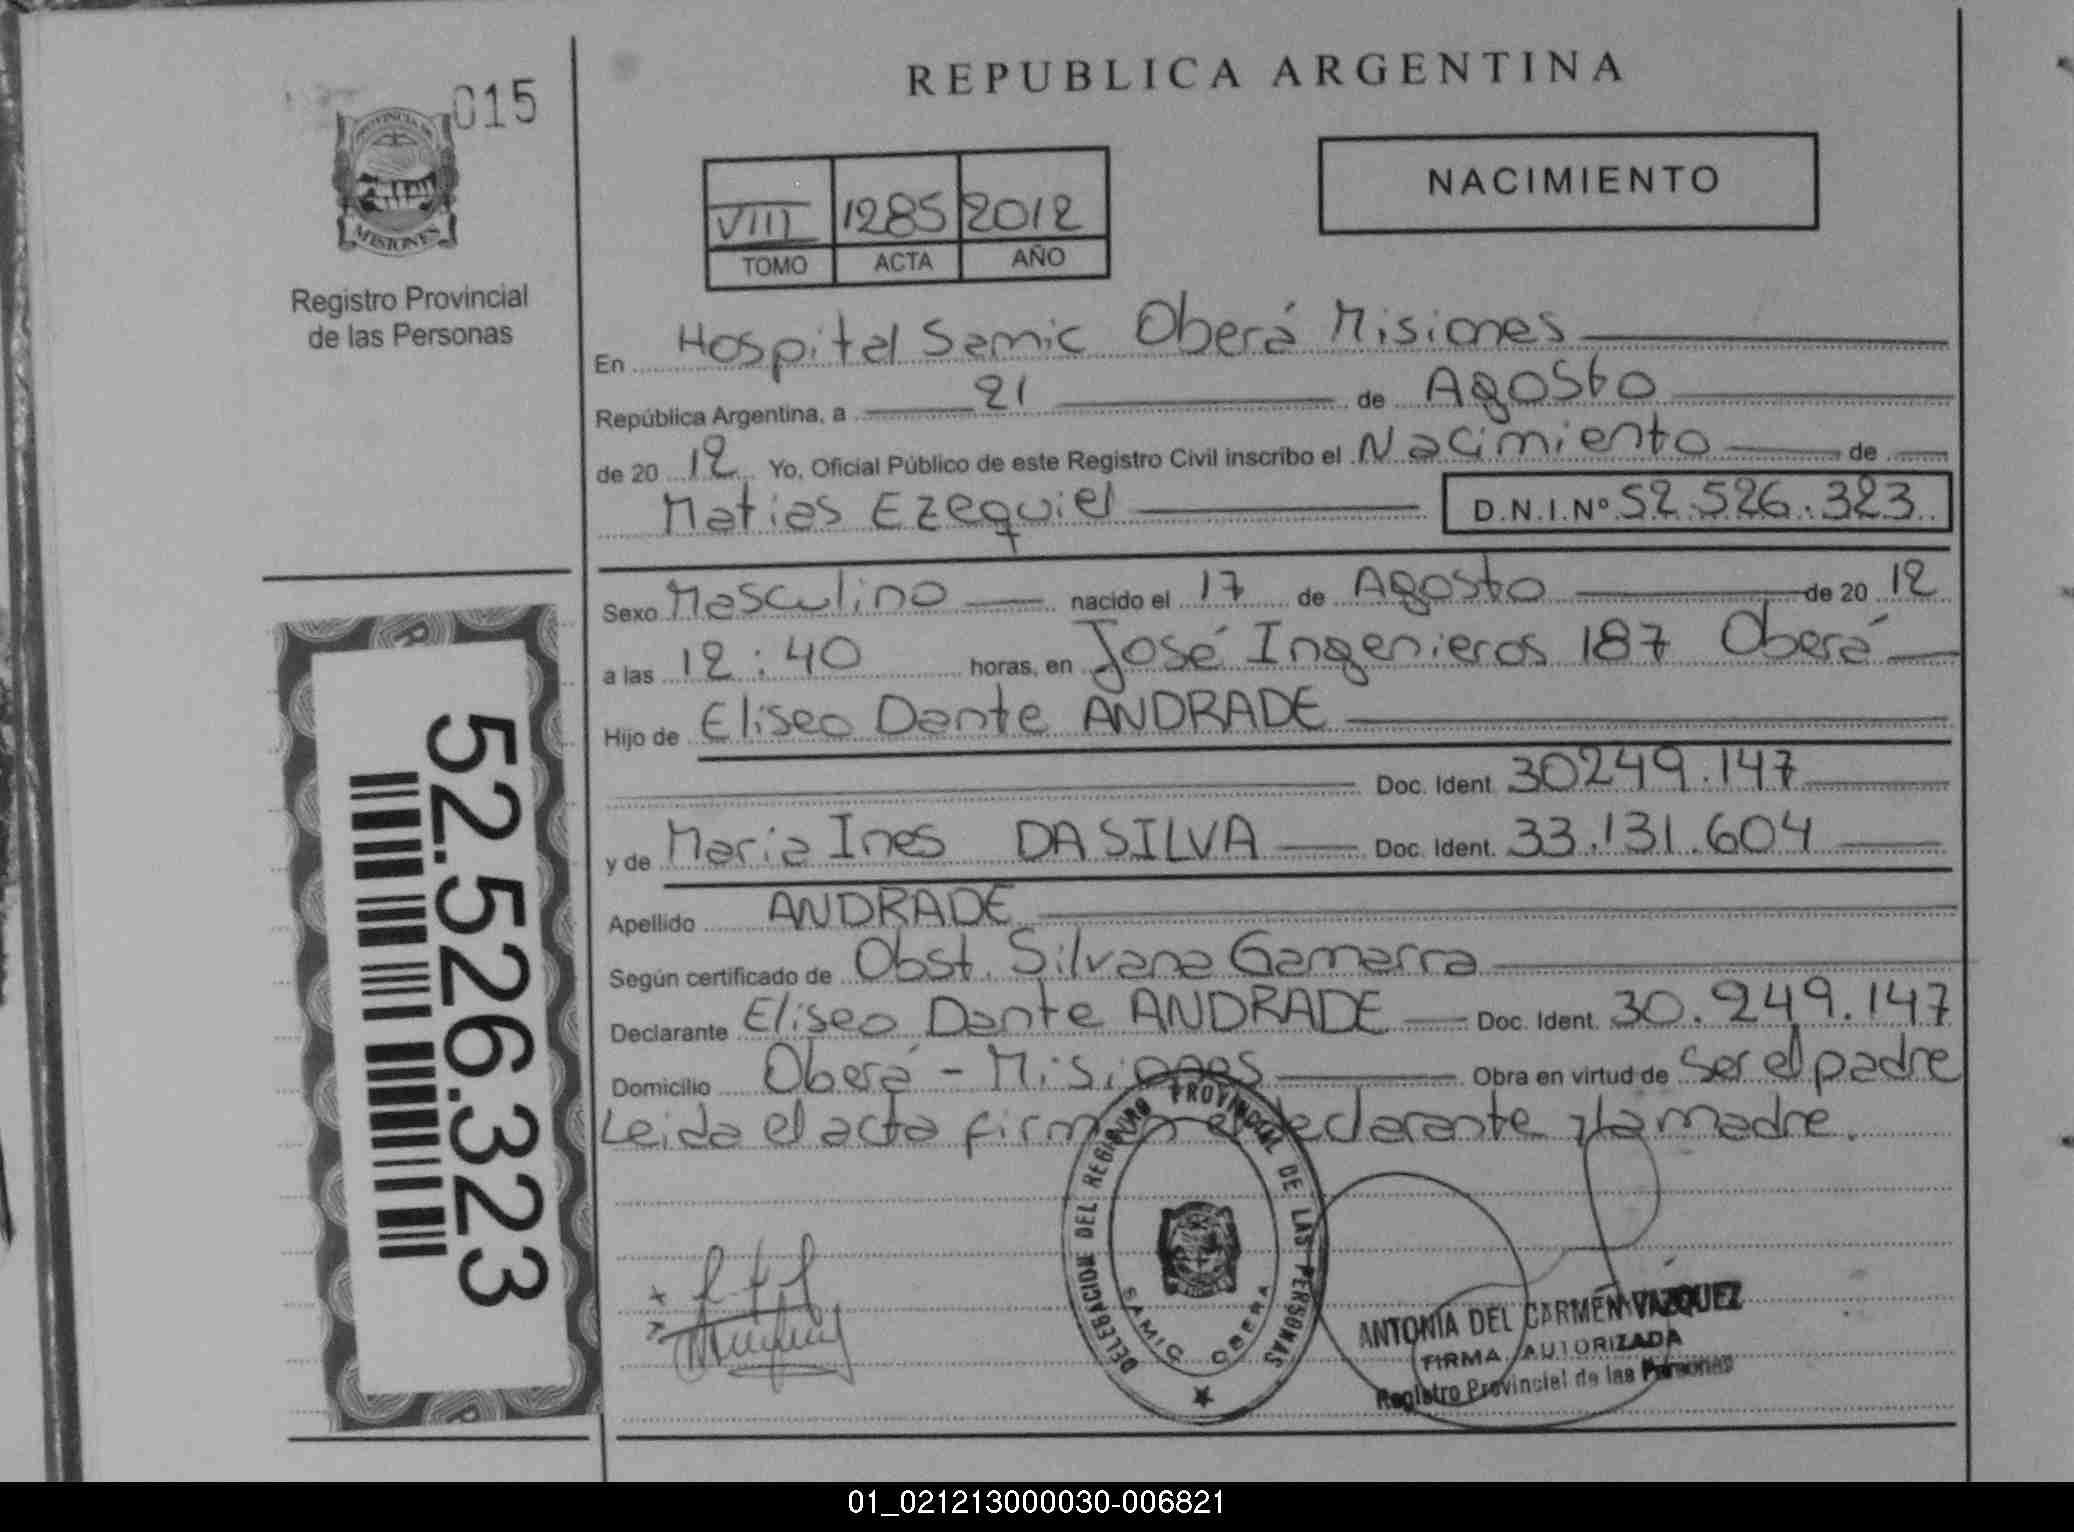 REPUBLICA ARGENTINA
015
PROVINCIA DE
MISIONES
Registro Provincial
de las Personas
NACIMIENTO
VIII 1285 2012
TOMO ACTA AÑO
En Hospital Samic Oberá Misiones
República Argentina, a 21 de Agosto
de 20 12 Yo, Oficial Público de este Registro Civil inscribo el Nacimiento de
Matias Ezequiel D.N.I.Nº 52.526.323
Sexo Masculino nacido el 17 de Agosto de 20 12
a las 12:40 horas, en José Ingenieros 187 Oberá
Hijo de Eliseo Dante ANDRADE
Doc. Ident. 30249.147
y de Maria Ines DA SILVA Doc. Ident. 33.131.604
Apellido ANDRADE
Según certificado de Obst. Silvana Gamarra
Declarante Eliseo Dante ANDRADE Doc. Ident. 30.249.147
Domicilio Oberá - Misiones Obra en virtud de ser el padre
Leida el acta firman el declarante y la madre.
52.526.323
DELEGACION DEL REGISTRO PROVINCIAL DE LAS PERSONAS
SAMIC OBERA
ANTONIA DEL CARMEN VAZQUEZ
FIRMA AUTORIZADA
Registro Provincial de las Personas
01_021213000030-006821